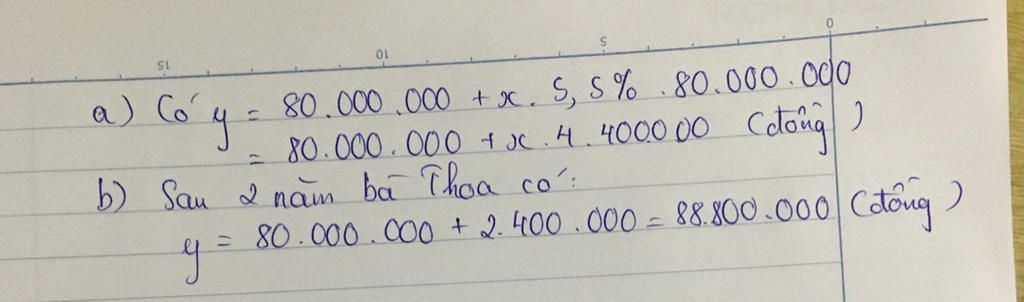 0
5
10
15
a) Có y = 80.000.000 + x. 5,5% .80.000.000
= 80.000.000 + x.4.400000 (đồng)
b) Sau 2 năm bà Thoa có:
y = 80.000.000 + 2.400.000 = 88.800.000 (đồng)